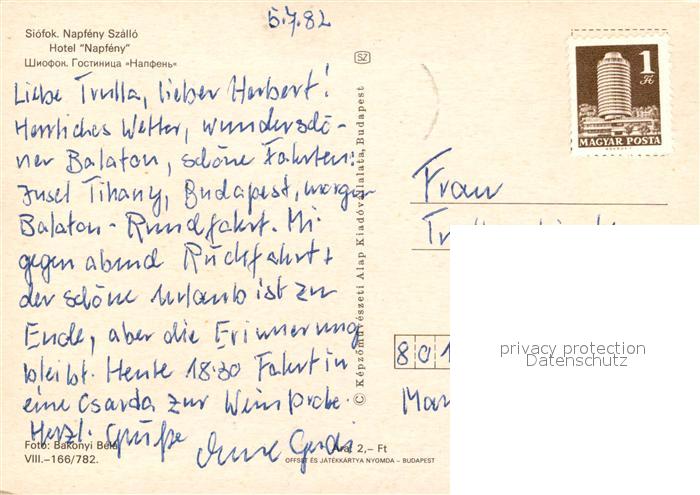 5.7.82
Siófok. Napfény Szálló
Hotel "Napfény"
Шиофок. Гостиница «Напфень»
Liebe Trulla, lieber Herbert!
Herrliches Wetter, wunderschö-
ner Balaton, schöne Fahrten:
Insel Tihany, Budapest, morgen
Balaton-Rundfahrt. Mi
gegen abend Rückfahrt +
der schöne Urlaub ist zu
Ende, aber die Erinnerung
bleibt. Heute 18.30 Fahrt in
eine Csarda zur Weinprobe.
Herzl. Grüße
Foto: Bakonyi Béla
VIII.–166/782.
Ára: 2,– Ft
OFFSET ÉS JÁTÉKKÁRTYA NYOMDA – BUDAPEST
SZ
© Képzőművészeti Alap Kiadóvállalata, Budapest
1 Ft
MAGYAR POSTA
Frau
801
privacy protection
Datenschutz